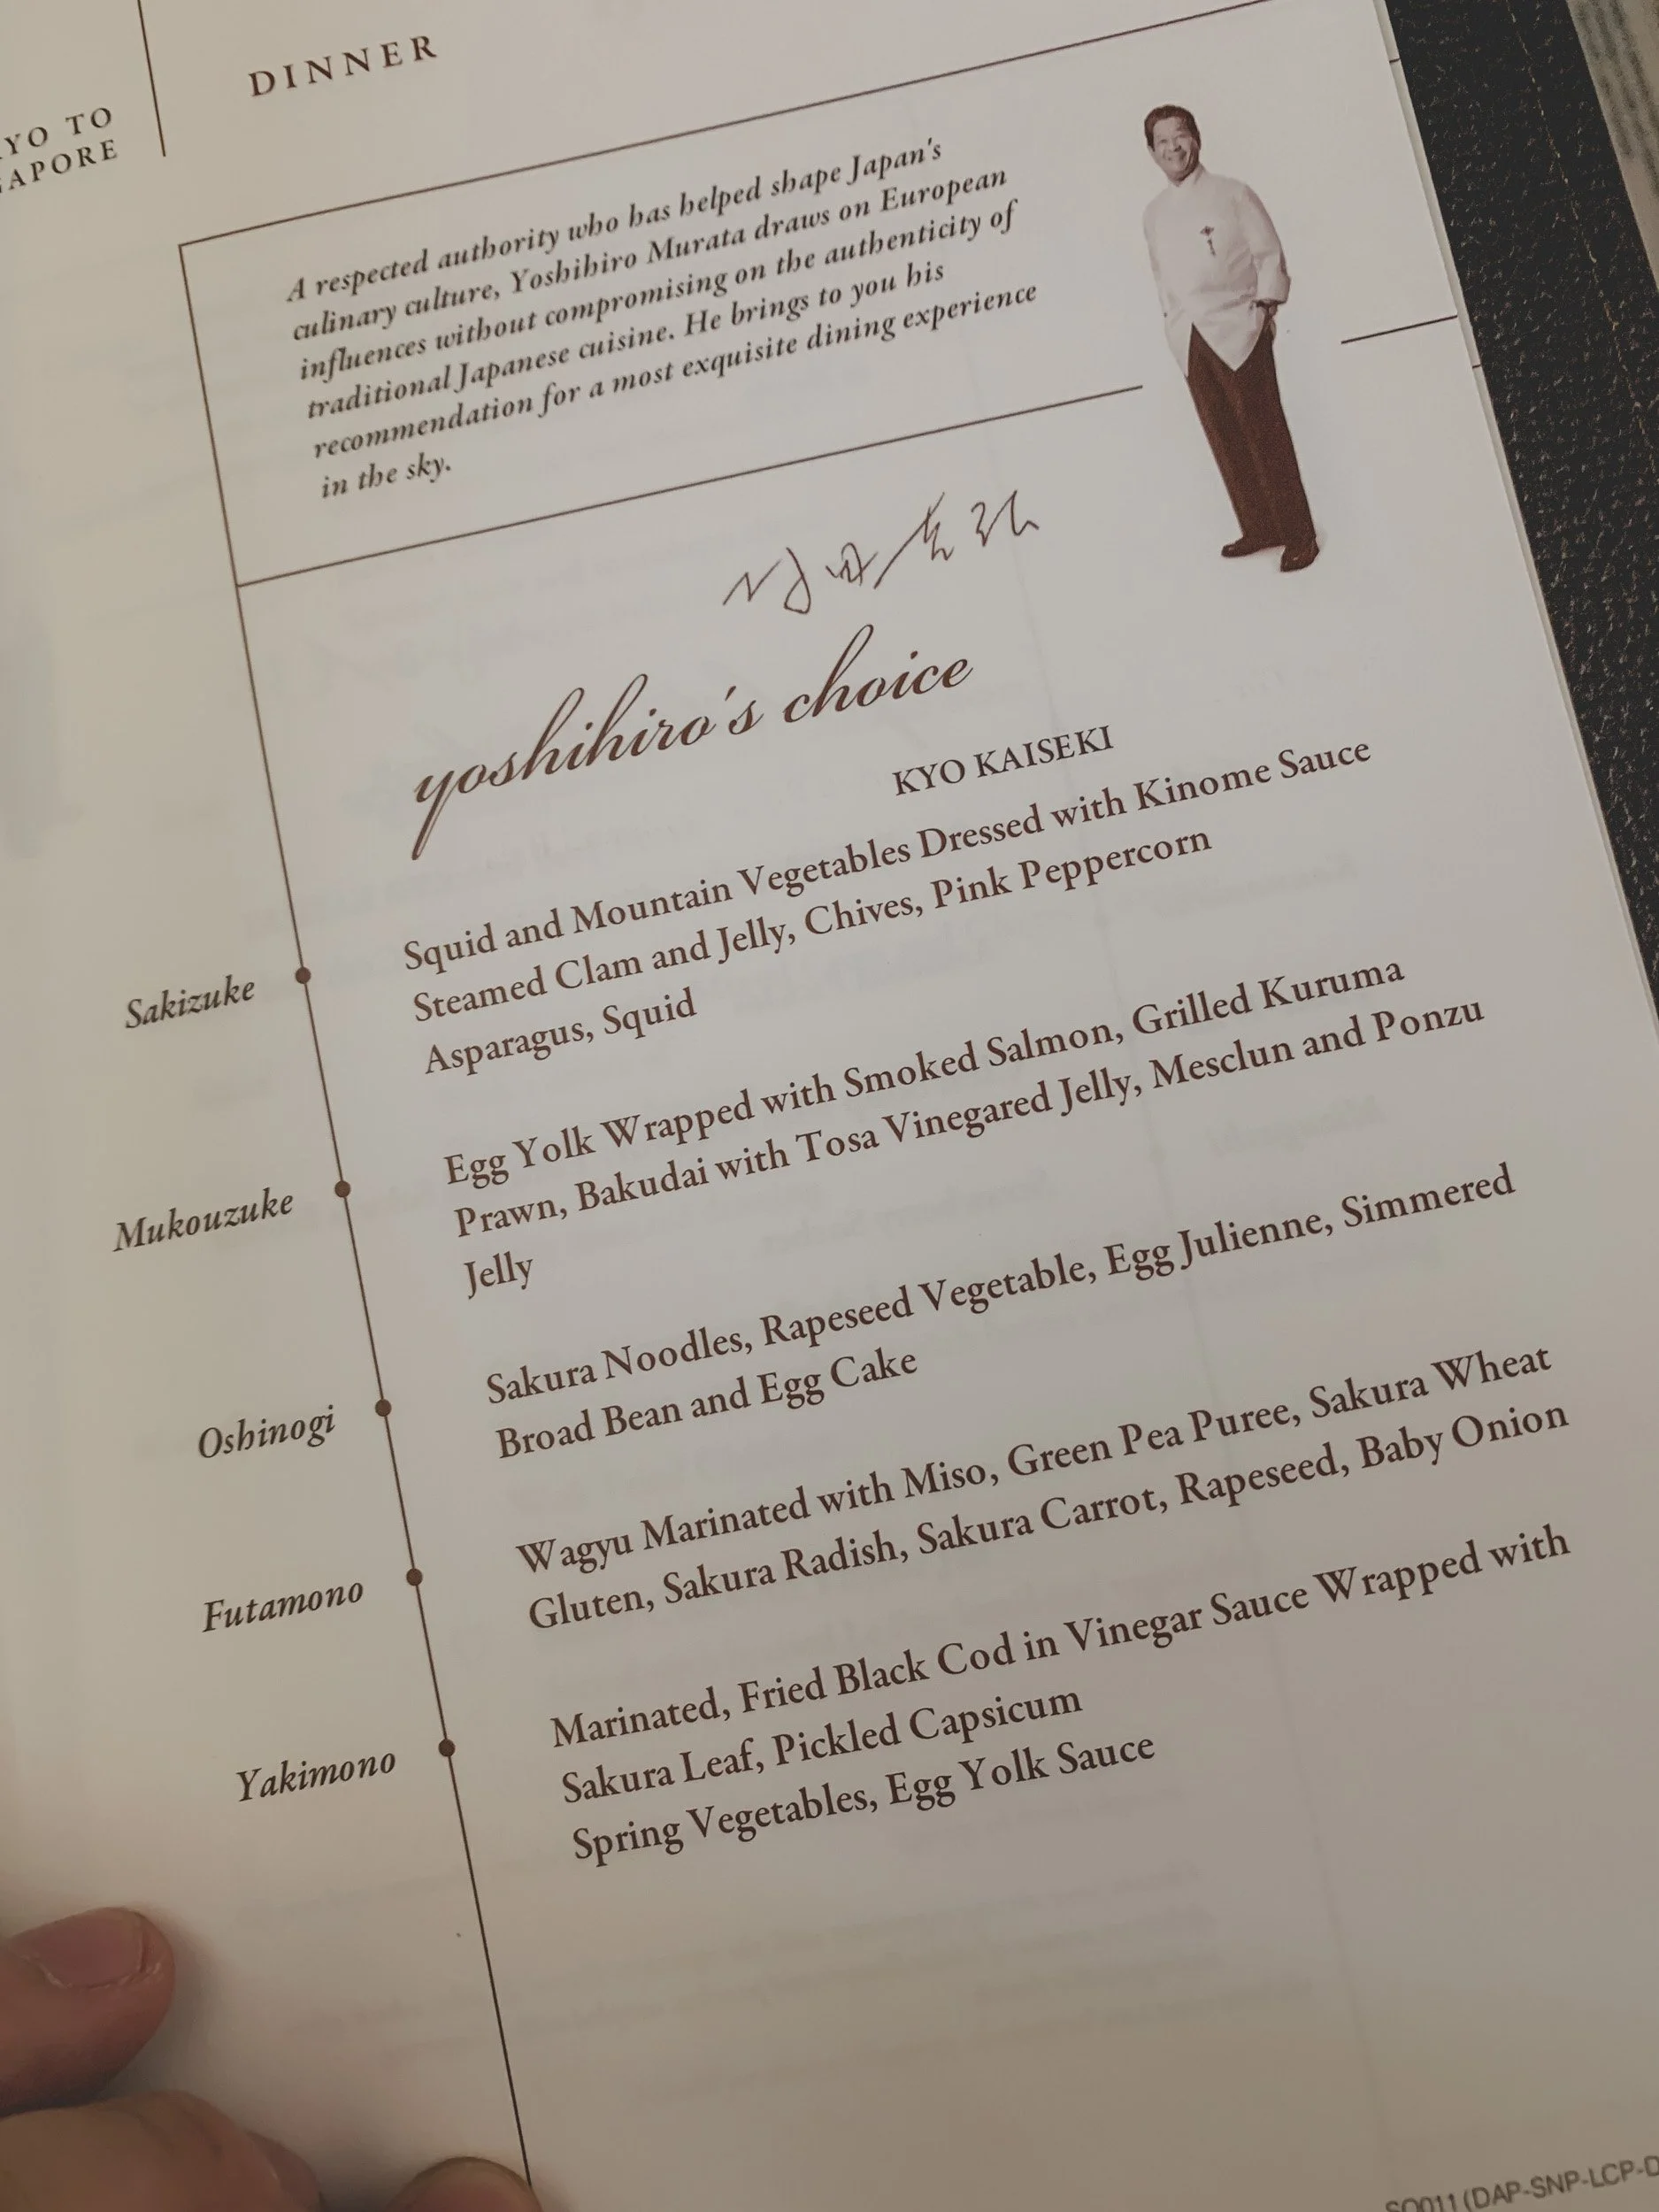 DINNER
YO TO
APORE
A respected authority who has helped shape Japan's
culinary culture, Yoshihiro Murata draws on European
influences without compromising on the authenticity of
traditional Japanese cuisine. He brings to you his
recommendation for a most exquisite dining experience
in the sky.
yoshihiro's choice
KYO KAISEKI
Sakizuke
Squid and Mountain Vegetables Dressed with Kinome Sauce
Steamed Clam and Jelly, Chives, Pink Peppercorn
Asparagus, Squid
Mukouzuke
Egg Yolk Wrapped with Smoked Salmon, Grilled Kuruma
Prawn, Bakudai with Tosa Vinegared Jelly, Mesclun and Ponzu
Jelly
Oshinogi
Sakura Noodles, Rapeseed Vegetable, Egg Julienne, Simmered
Broad Bean and Egg Cake
Futamono
Wagyu Marinated with Miso, Green Pea Puree, Sakura Wheat
Gluten, Sakura Radish, Sakura Carrot, Rapeseed, Baby Onion
Yakimono
Marinated, Fried Black Cod in Vinegar Sauce Wrapped with
Sakura Leaf, Pickled Capsicum
Spring Vegetables, Egg Yolk Sauce
SQ011 (DAP-SNP-LCP-D